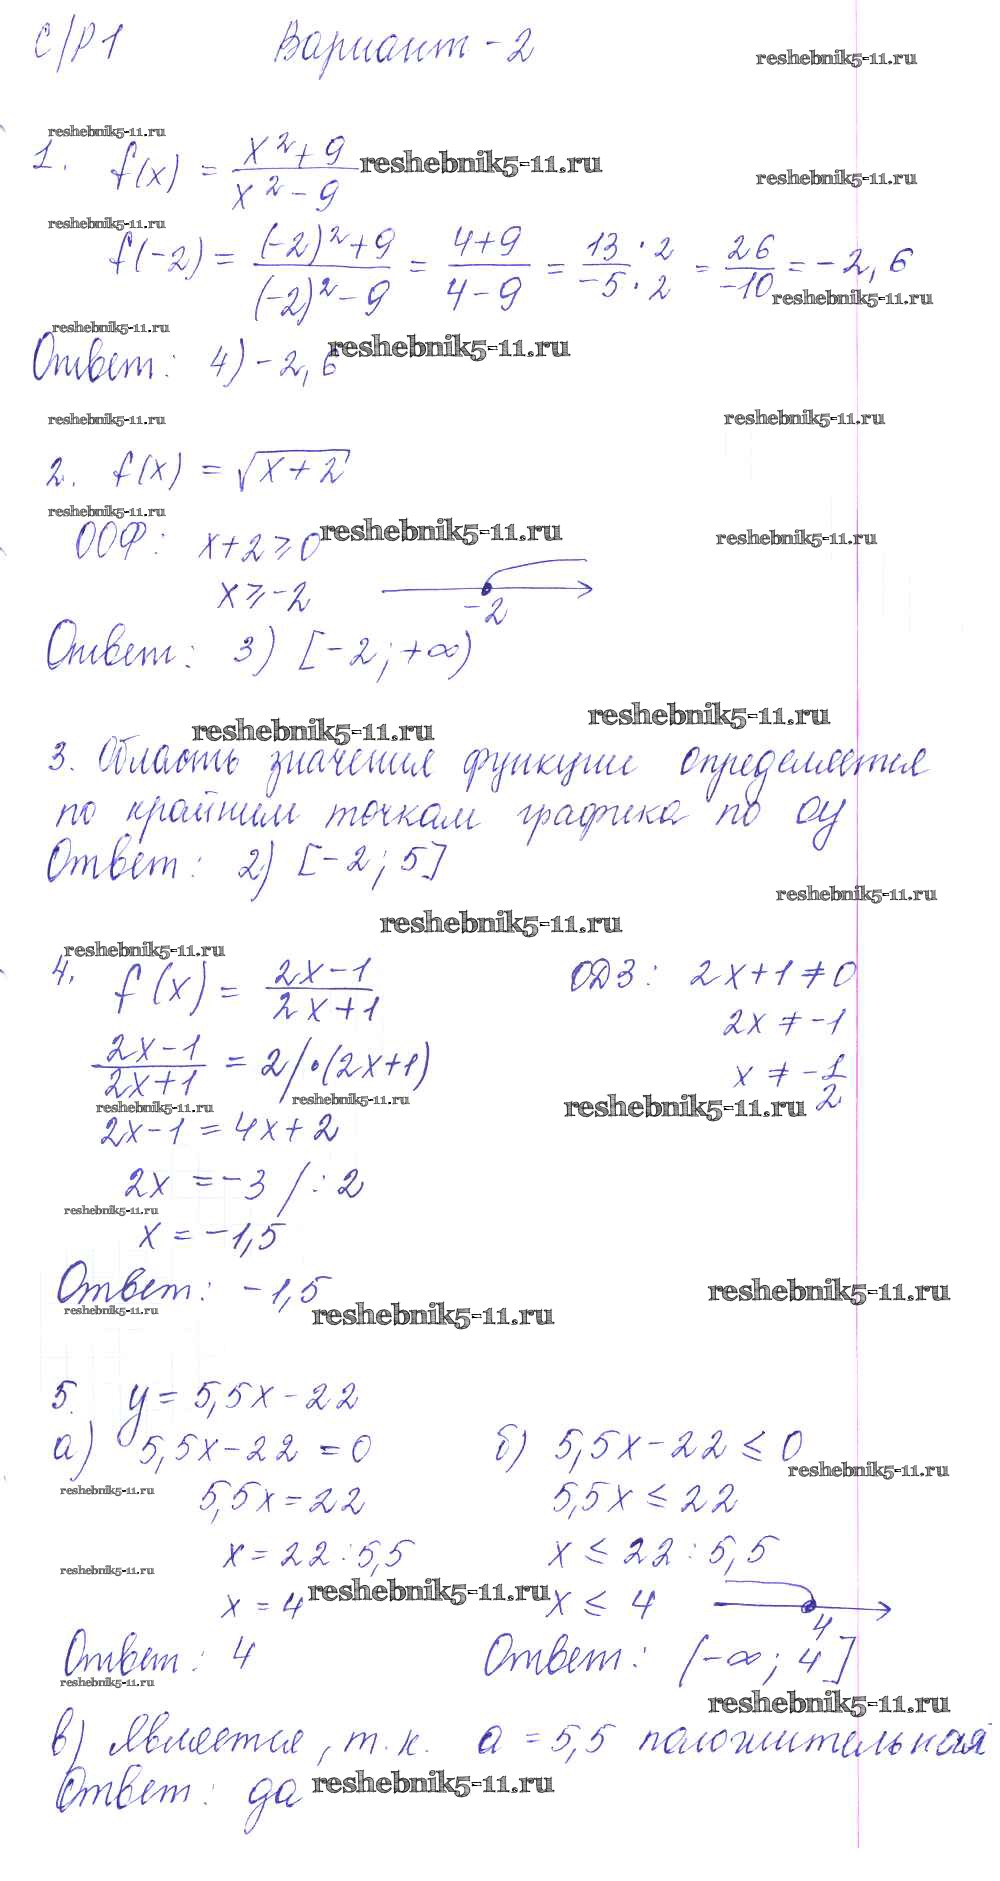 С/Р 1 Вариант - 2
reshebnik5-11.ru
reshebnik5-11.ru
1. f(x) = (x² + 9)/(x² - 9)
reshebnik5-11.ru
reshebnik5-11.ru
reshebnik5-11.ru
f(-2) = ((-2)² + 9)/((-2)² - 9) = (4+9)/(4-9) = (13 · 2)/(-5 · 2) = 26/-10 = -2,6
reshebnik5-11.ru
reshebnik5-11.ru
Ответ: 4) -2,6
reshebnik5-11.ru
reshebnik5-11.ru
reshebnik5-11.ru
2. f(x) = √(x+2)
reshebnik5-11.ru
reshebnik5-11.ru
reshebnik5-11.ru
ООФ: x+2 ≥ 0
x ≥ -2
-2
Ответ: 3) [-2; +∞)
reshebnik5-11.ru
reshebnik5-11.ru
3. Область значения функции определяется
по крайним точкам графика по Oy
Ответ: 2) [-2; 5]
reshebnik5-11.ru
reshebnik5-11.ru
reshebnik5-11.ru
4. f(x) = (2x-1)/(2x+1) ОДЗ: 2x+1 ≠ 0
2x ≠ -1
(2x-1)/(2x+1) = 2 /·(2x+1) x ≠ -1/2
reshebnik5-11.ru
reshebnik5-11.ru
reshebnik5-11.ru
2x-1 = 4x+2
2x = -3 /:2
reshebnik5-11.ru
x = -1,5
Ответ: -1,5
reshebnik5-11.ru
reshebnik5-11.ru
reshebnik5-11.ru
5. y = 5,5x - 22
а) 5,5x - 22 = 0 б) 5,5x - 22 ≤ 0
reshebnik5-11.ru
reshebnik5-11.ru
5,5x = 22 5,5x ≤ 22
x = 22 : 5,5 x ≤ 22 : 5,5
reshebnik5-11.ru
reshebnik5-11.ru
x = 4 x ≤ 4
4
Ответ: 4 Ответ: (-∞; 4]
reshebnik5-11.ru
reshebnik5-11.ru
в) Является, т.к. a = 5,5 положительная
Ответ: да
reshebnik5-11.ru